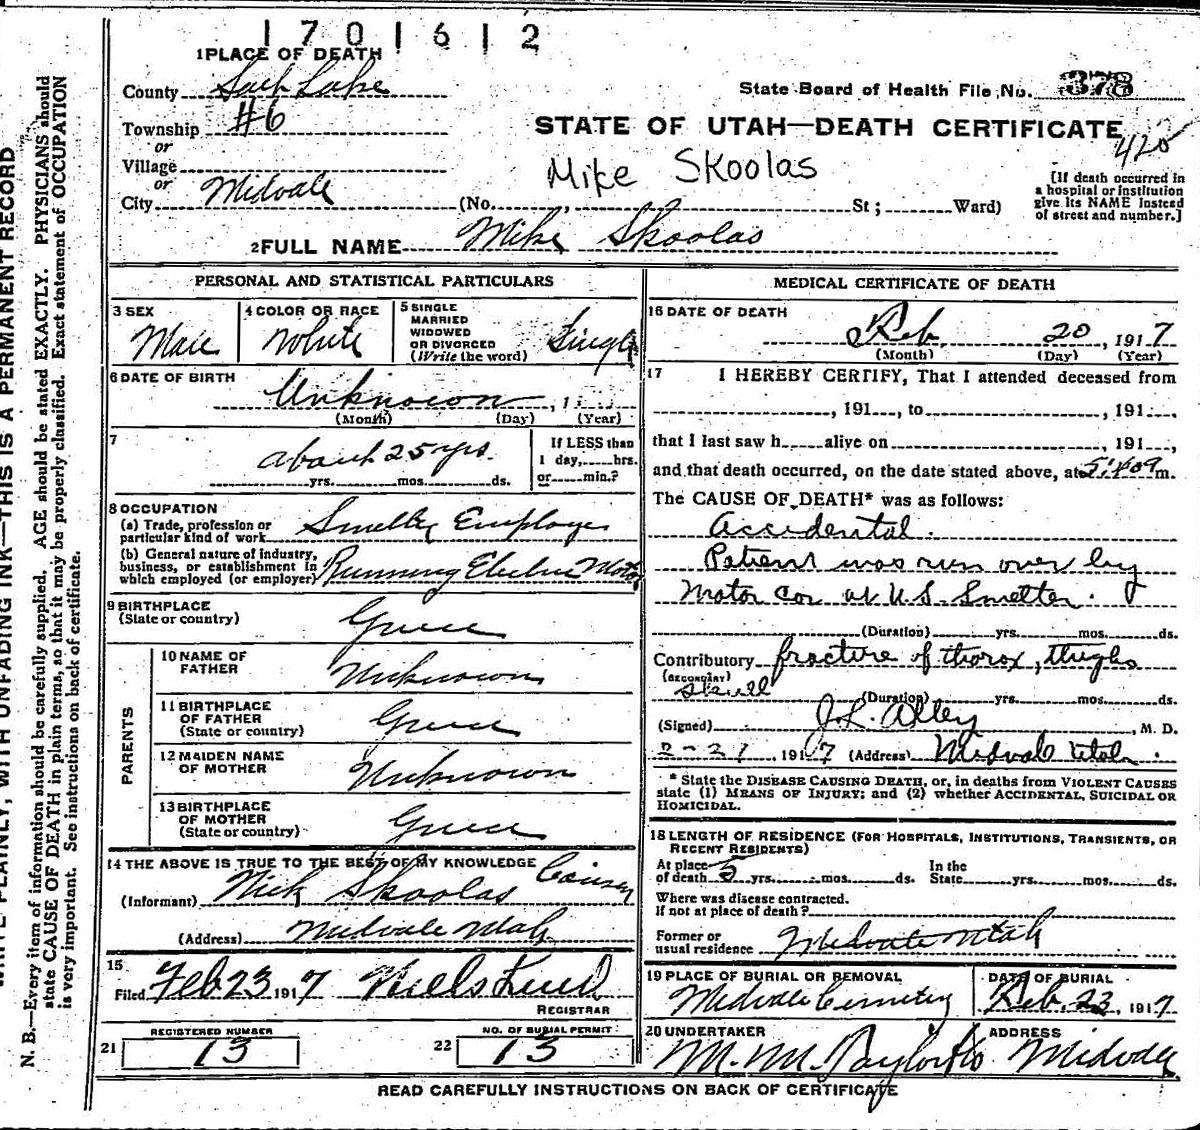 1701612
1 PLACE OF DEATH
County Salt Lake
State Board of Health File No. 378
Township #6
STATE OF UTAH—DEATH CERTIFICATE
or
Village
Mike Skoolas
or
City Midvale (No. , St; Ward)
[If death occurred in
a hospital or institution
give its NAME instead
of street and number.]
2 FULL NAME Mike Skoolas
PERSONAL AND STATISTICAL PARTICULARS
3 SEX
Male
4 COLOR OR RACE
White
5 SINGLE
MARRIED
WIDOWED
OR DIVORCED
(Write the word)
Single
6 DATE OF BIRTH
Unknown , 1
(Month) (Day) (Year)
7
about 25 yrs.
yrs. mos. ds.
If LESS than
1 day, hrs.
or min.?
8 OCCUPATION
(a) Trade, profession or
particular kind of work Smelter Employe
(b) General nature of industry,
business, or establishment in
which employed (or employer) Running Electric Motor
9 BIRTHPLACE
(State or country) Greece
PARENTS
10 NAME OF
FATHER Unknown
11 BIRTHPLACE
OF FATHER
(State or country) Greece
12 MAIDEN NAME
OF MOTHER Unknown
13 BIRTHPLACE
OF MOTHER
(State or country) Greece
14 THE ABOVE IS TRUE TO THE BEST OF MY KNOWLEDGE
(Informant) Nick Skoolas Cousin
(Address) Midvale Utah
15
Filed Feb 23 1917 Niels Lund
REGISTRAR
REGISTERED NUMBER
21 13
NO. OF BURIAL PERMIT
22 13
MEDICAL CERTIFICATE OF DEATH
16 DATE OF DEATH
Feb. 20, 1917
(Month) (Day) (Year)
17 I HEREBY CERTIFY, That I attended deceased from
, 191 , to , 191 ,
that I last saw h alive on , 191 ,
and that death occurred, on the date stated above, at m.
The CAUSE OF DEATH* was as follows:
Accidental.
Patient was run over by
Motor Car at U.S. Smelter.
(Duration) yrs. mos. ds.
Contributory fracture of thorax, thighs
(SECONDARY)
skull (Duration) yrs. mos. ds.
(Signed) J. L. Alley , M. D.
2-21 1917 (Address) Midvale Utah.
* State the DISEASE CAUSING DEATH, or, in deaths from VIOLENT CAUSES
state (1) MEANS OF INJURY; and (2) whether ACCIDENTAL, SUICIDAL OR
HOMICIDAL.
18 LENGTH OF RESIDENCE (FOR HOSPITALS, INSTITUTIONS, TRANSIENTS, OR
RECENT RESIDENTS)
At place
of death 5 yrs. mos. ds.
In the
State yrs. mos. ds.
Where was disease contracted.
If not at place of death?
Former or
usual residence Midvale Utah
19 PLACE OF BURIAL OR REMOVAL
Midvale Cemetery
DATE OF BURIAL
Feb. 23, 1917
20 UNDERTAKER
M. M. Taylor & Co
ADDRESS
Midvale
READ CAREFULLY INSTRUCTIONS ON BACK OF CERTIFICATE
WRITE PLAINLY, WITH UNFADING INK—THIS IS A PERMANENT RECORD
N. B.—Every item of information should be carefully supplied. AGE should be stated EXACTLY. PHYSICIANS should
state CAUSE OF DEATH in plain terms, so that it may be properly classified. Exact statement of OCCUPATION
is very important. See instructions on back of certificate.